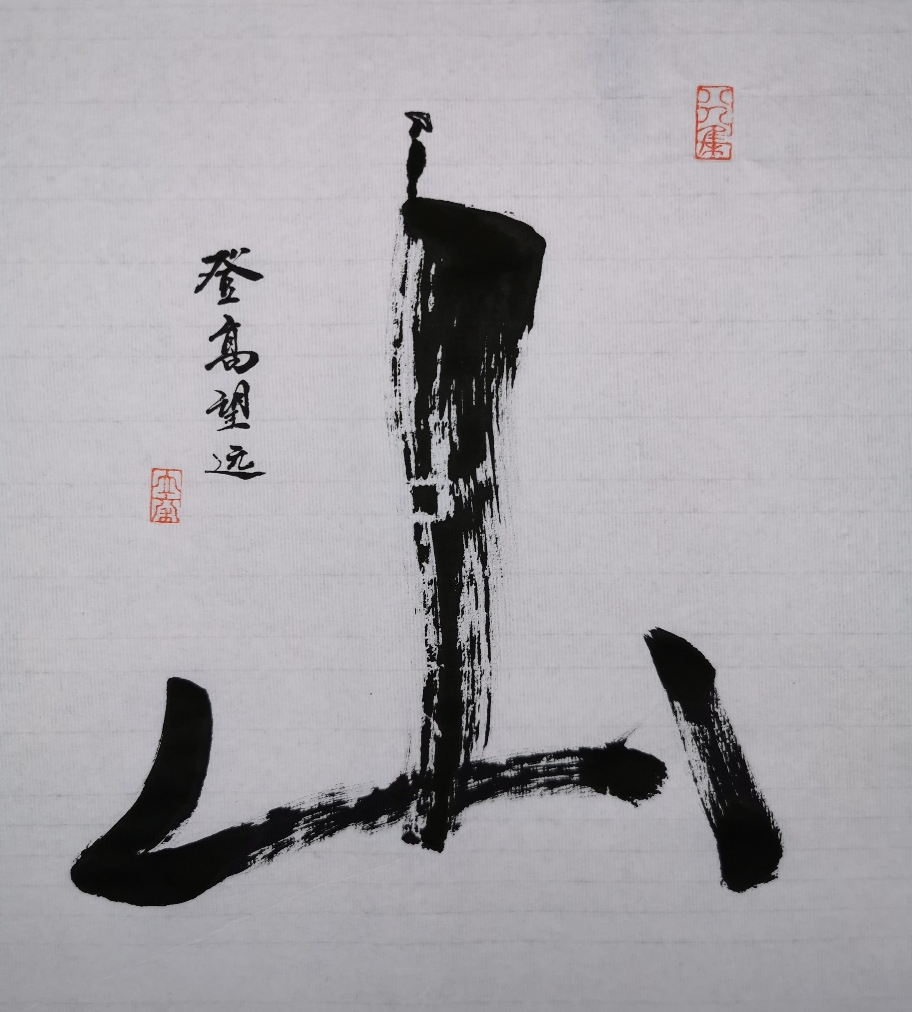 山
登高望远